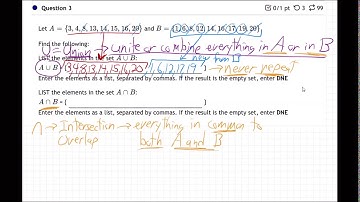 Question 3
0/1 pt 3 99
Let A = {3, 4, 8, 13, 14, 15, 16, 20} and B = {1, 6, 8, 12, 14, 16, 17, 19, 20}
Find the following:
U = Union → unite or combining everything in A or in B
LIST the elements in the set A ∪ B:
A ∪ B = {3,4,8,13,14,15,16,20,1,6,12,17,19} → never repeat
Enter the elements as a list, separated by commas. If the result is the empty set, enter DNE
LIST the elements in the set A ∩ B:
A ∩ B = { }
Enter the elements as a list, separated by commas. If the result is the empty set, enter DNE
∩ → Intersection → everything in common to
Overlap both A and B